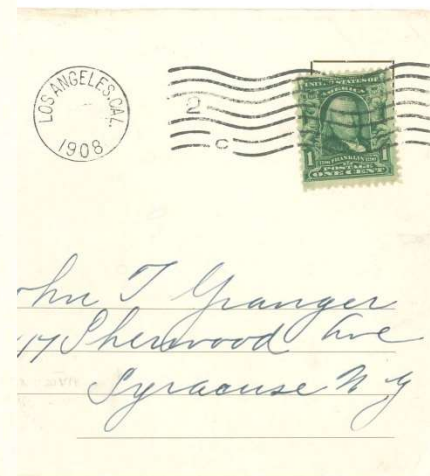 LOS ANGELES, CAL.
1908
2
C
UNITED STATES OF
AMERICA
1 FRANKLIN 1
POSTAGE
ONE CENT
John T Granger
47 Sherwood Ave
Syracuse N Y